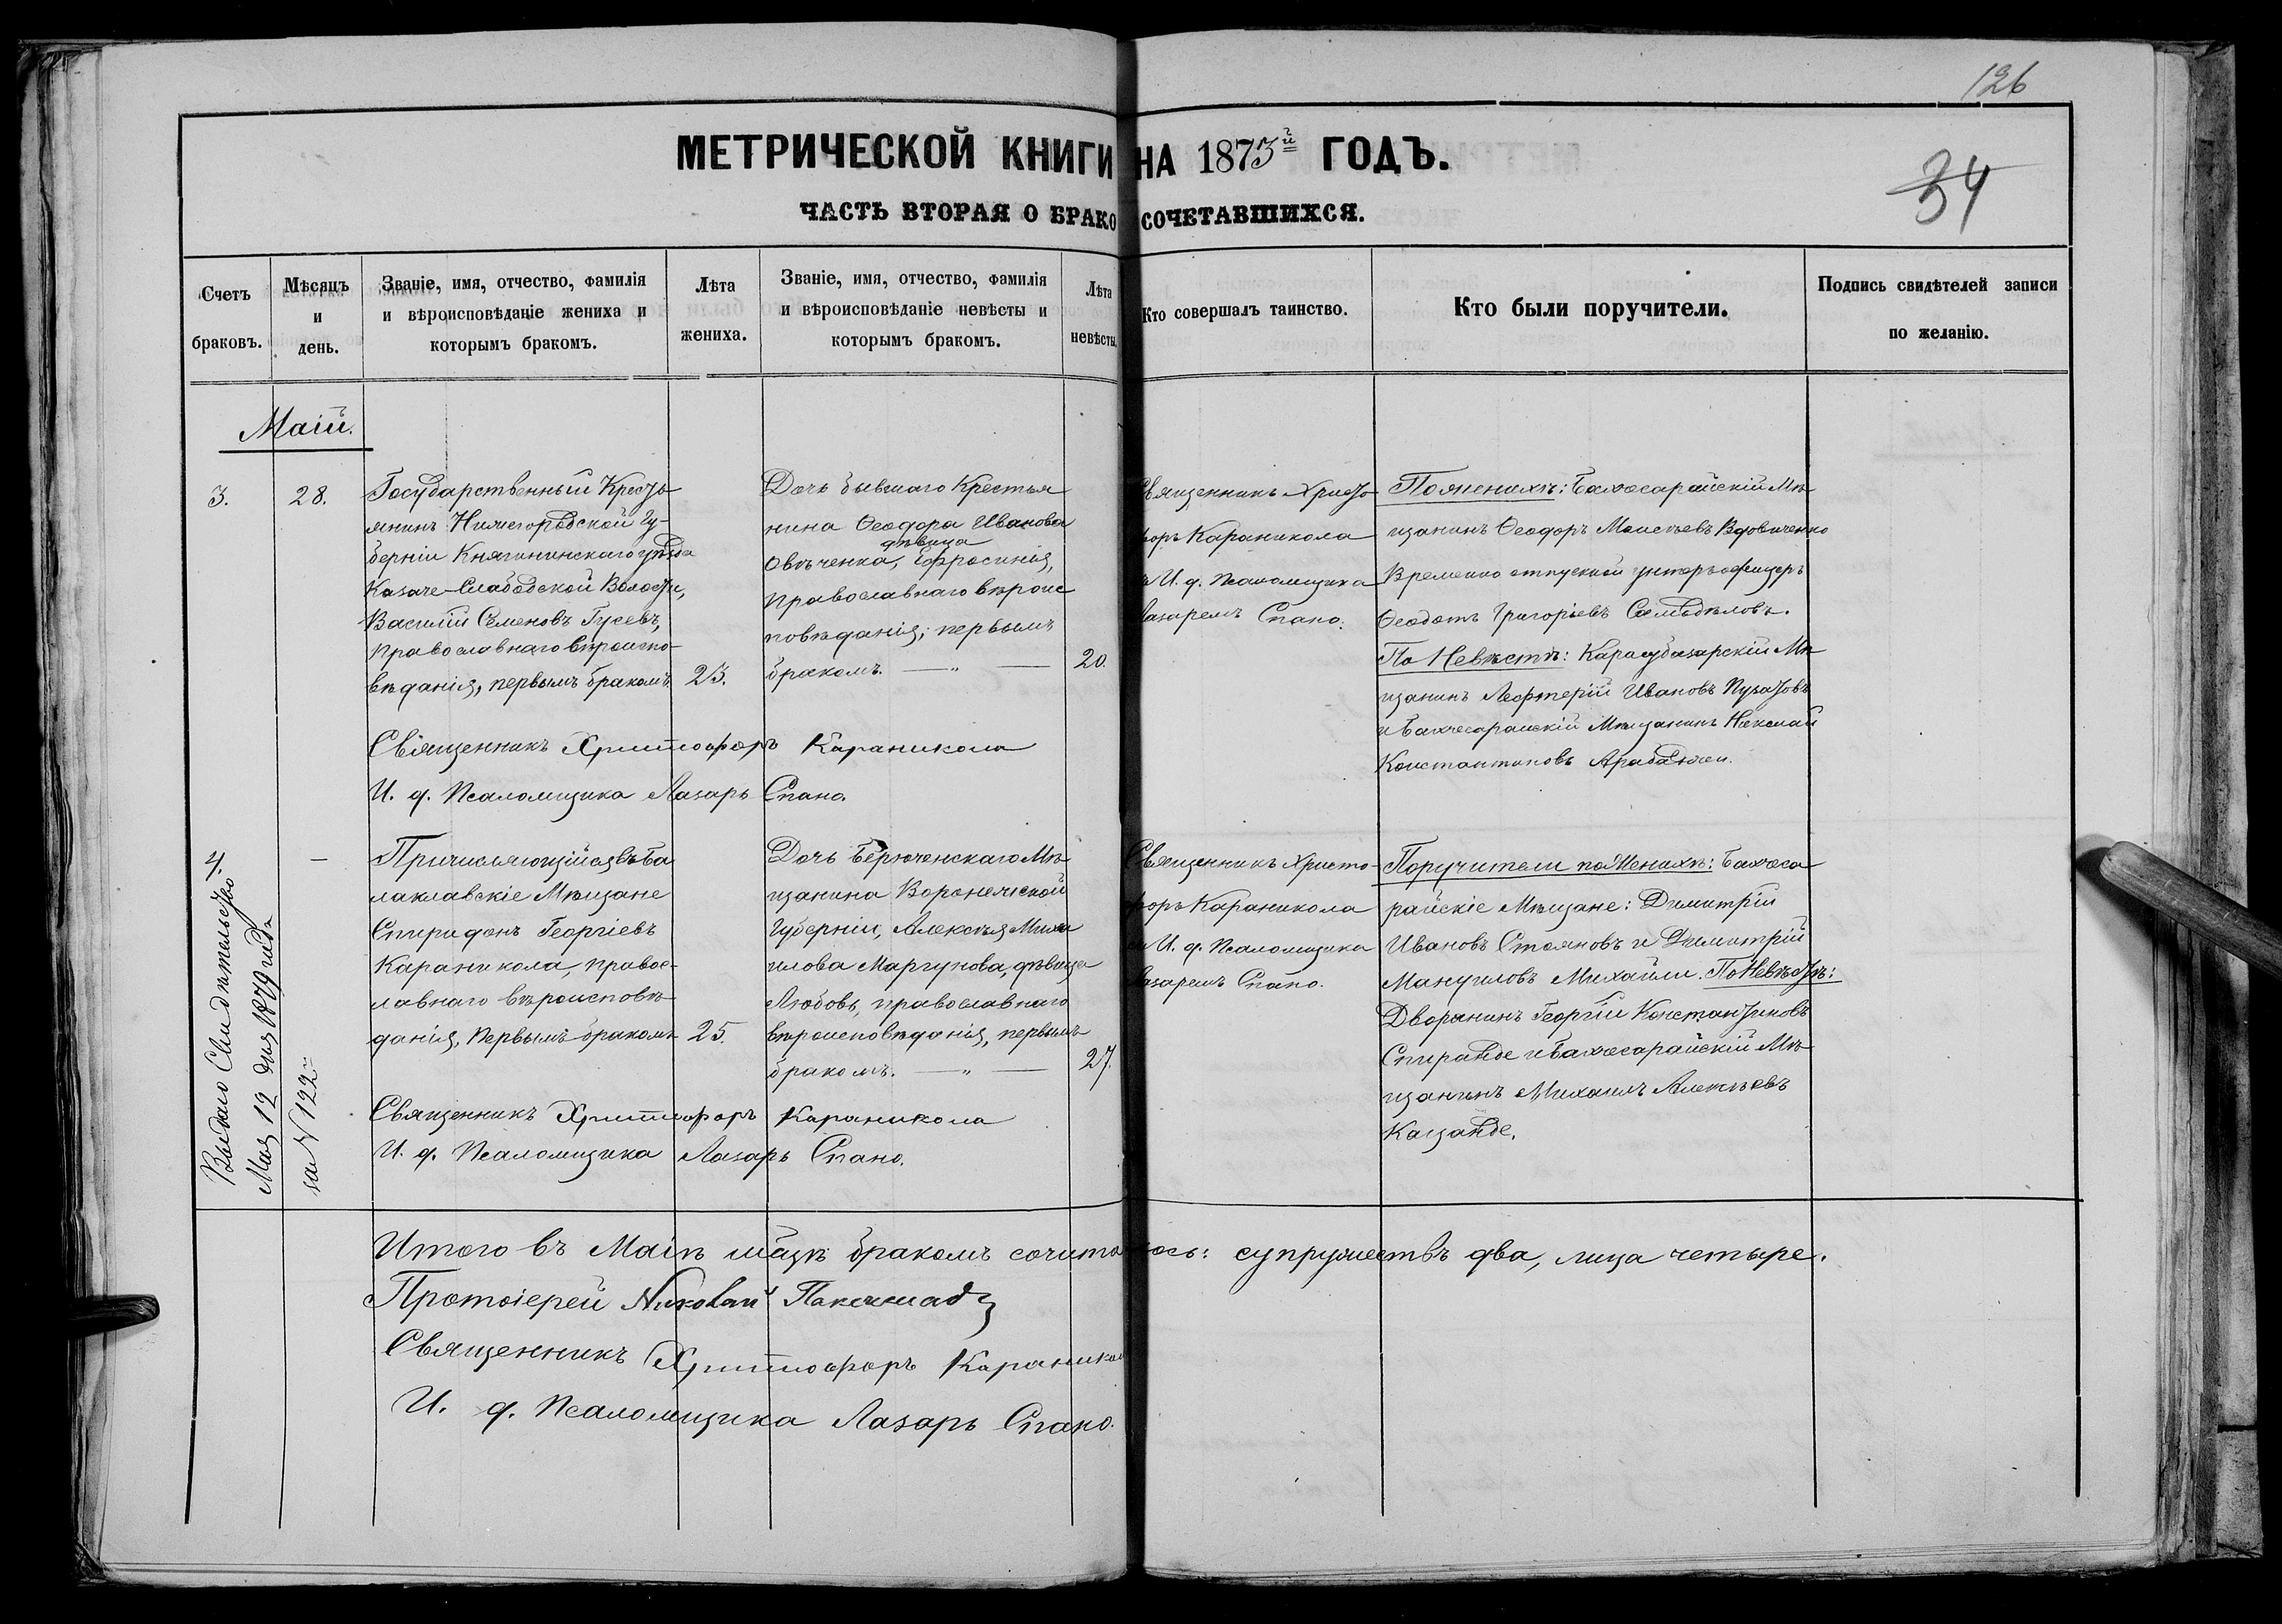 126
МЕТРИЧЕСКОЙ КНИГИ НА 1875й ГОДЪ.
34
ЧАСТЬ ВТОРАЯ О БРАКОСОЧЕТАВШИХСЯ.
Счетъ браковъ.
Мѣсяцъ и день.
Званіе, имя, отчество, фамилія
и вѣроисповѣданіе жениха и
которымъ бракомъ.
Лѣта жениха.
Званіе, имя, отчество, фамилія
и вѣроисповѣданіе невѣсты и
которымъ бракомъ.
Лѣта невѣсты.
Кто совершалъ таинство.
Кто были поручители.
Подпись свидѣтелей записи
по желанію.
Маій.
3.
28.
Государственный Кресть
янинъ Нижегородской Гу-
берніи Княгининскаго уѣзда
Казаче-Слабодской Волости,
Василій Семеновъ Гусевъ,
православнаго вѣроиспо-
вѣданія, первымъ бракомъ.
23.
Дочь бывшаго Крестья
нина Ѳеодора Иванова
дѣвица
Овѣченка, Ефросинія,
православнаго вѣроис
повѣданія; первымъ
бракомъ. — „ —
20.
Священникъ Христо
форъ Караникола
И. д. Псаломщика
Лазаремъ Спано.
По женихѣ: Бахчесарайскій Мѣ
щанинъ Ѳеодоръ Моисѣевъ Вдовиченко
Временно отпускной унтеръ офицеръ
Ѳеодотъ Григорьевъ Самъдѣловъ.
По Невѣстѣ: Карасубазарскій Мѣ
щанинъ Лефтерій Ивановъ
и Бахчесарайскій Мѣщанинъ Николай
Константиновъ Арабаджи.
Священникъ Христофоръ Караникола
И. д. Псаломщика Лазарь Спано.
4.
—
Выдано Свидѣтельство
Мая 12 дня 1879 года
за N 122
Причисляющійся въ Ба
лаклавскіе Мѣщане
Спиридонъ Георгіевъ
Караникола, правос-
лавнаго вѣроисповѣ-
данія, первымъ бракомъ
25.
Дочь Берюченскаго Мѣ
щанина Воронежской
Губерніи, Алексѣя Миха
илова Маргунова, дѣвица
Любовь, православнаго
вѣроисповѣданія, первымъ
бракомъ. — „ —
27.
Священникъ Христо-
форъ Караникола
И. д. Псаломщика
Лазаремъ Спано.
Поручители по Женихѣ: Бахчеса
райскіе Мѣщане: Димитрій
Ивановъ Стояновъ и Димитрій
Мануиловъ Михайли. По Невѣстѣ:
Дворянинъ Георгій Константиновъ
Спиранде и Бахчесарайскій Мѣ
щанинъ Михаилъ Алексѣевъ
Кацанде.
Священникъ Христофоръ Караникола
И. д. Псаломщика Лазарь Спано.
Итого въ Маіѣ мѣсяцѣ бракомъ сочиталось: супружествъ два, лица четыре.
Протоіерей Николай
Священникъ Христофоръ Караникола
И. д. Псаломщика Лазарь Спано.